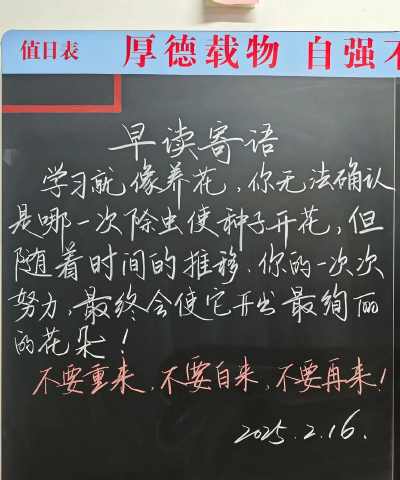 值日表 厚德载物 自强不
早读寄语
学习就像养花，你无法确认
是哪一次除虫使种子开花，但
随着时间的推移，你的一次次
努力，最终会使它开出最绚丽
的花朵！
不要重来，不要自来，不要再来！
2025.2.16.